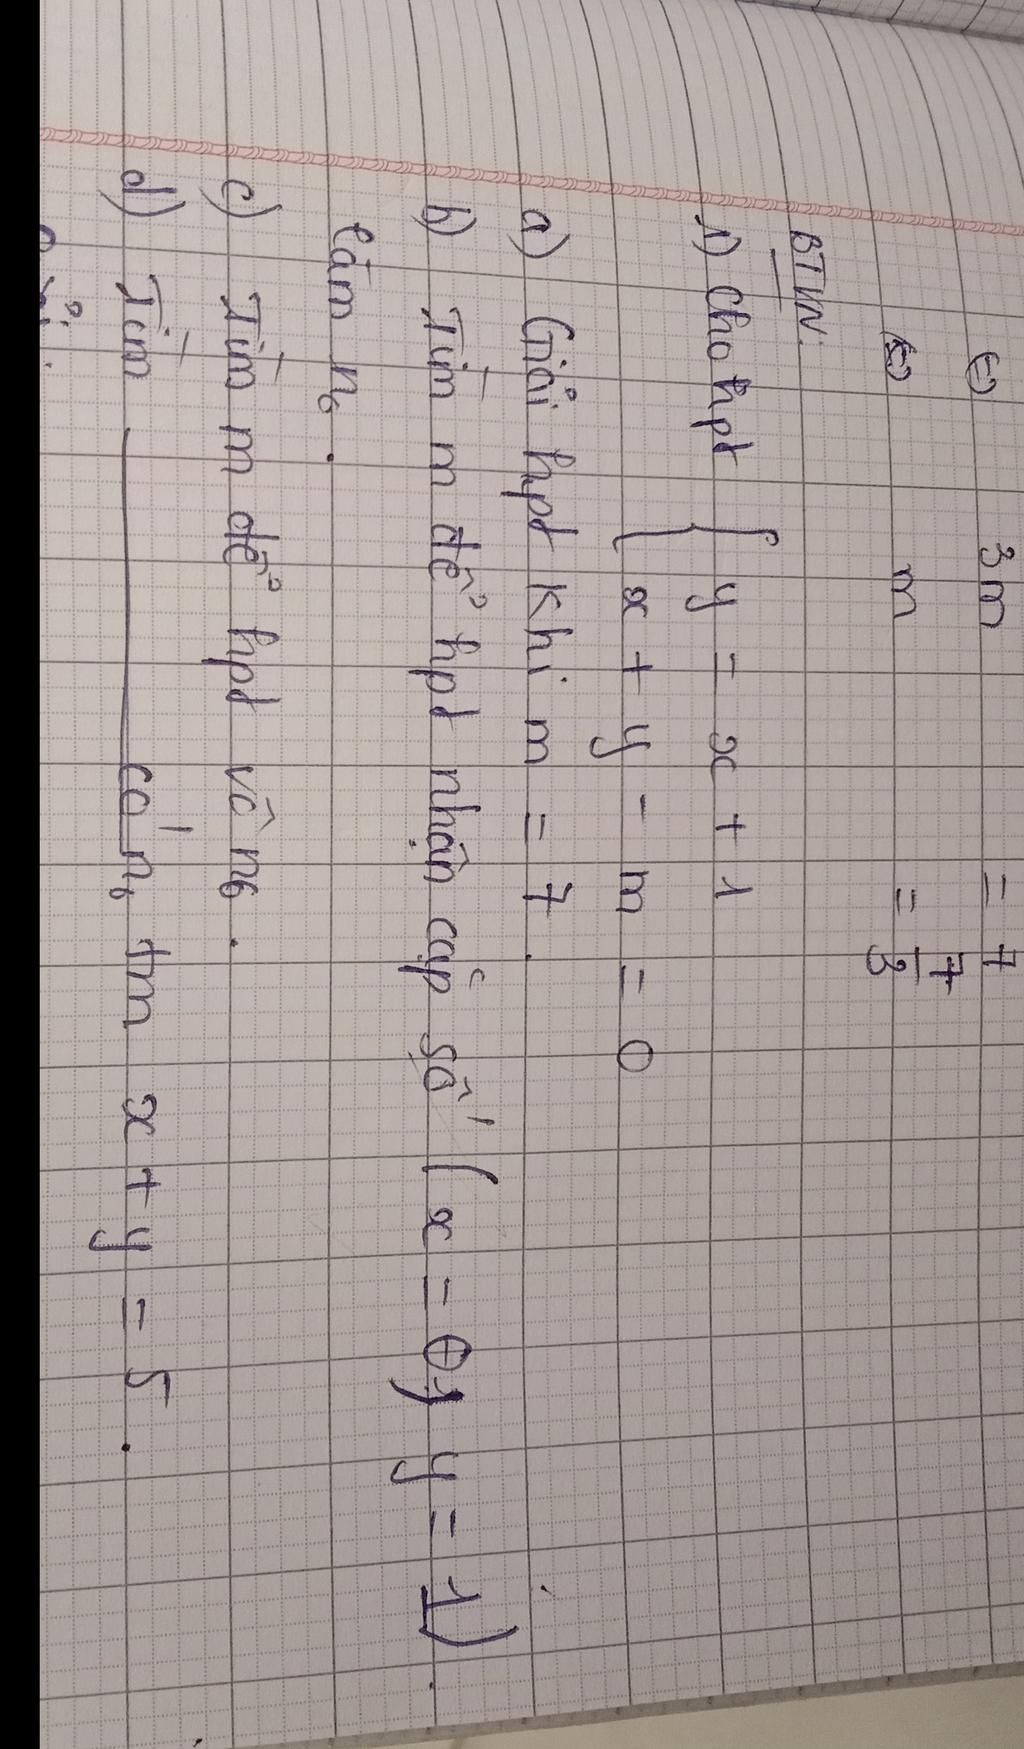 (=) 3m = 7
(=) m = 7/3
BTVN:
1) Cho hpt { y = x + 1
x + y - m = 0
a) Giải hpt khi m = 7.
b) Tìm m để hpt nhận cặp số (x = 0; y = 1)
làm n₀.
c) Tìm m để hpt vô n₀.
d) Tìm ——— có n₀ tm x + y = 5.